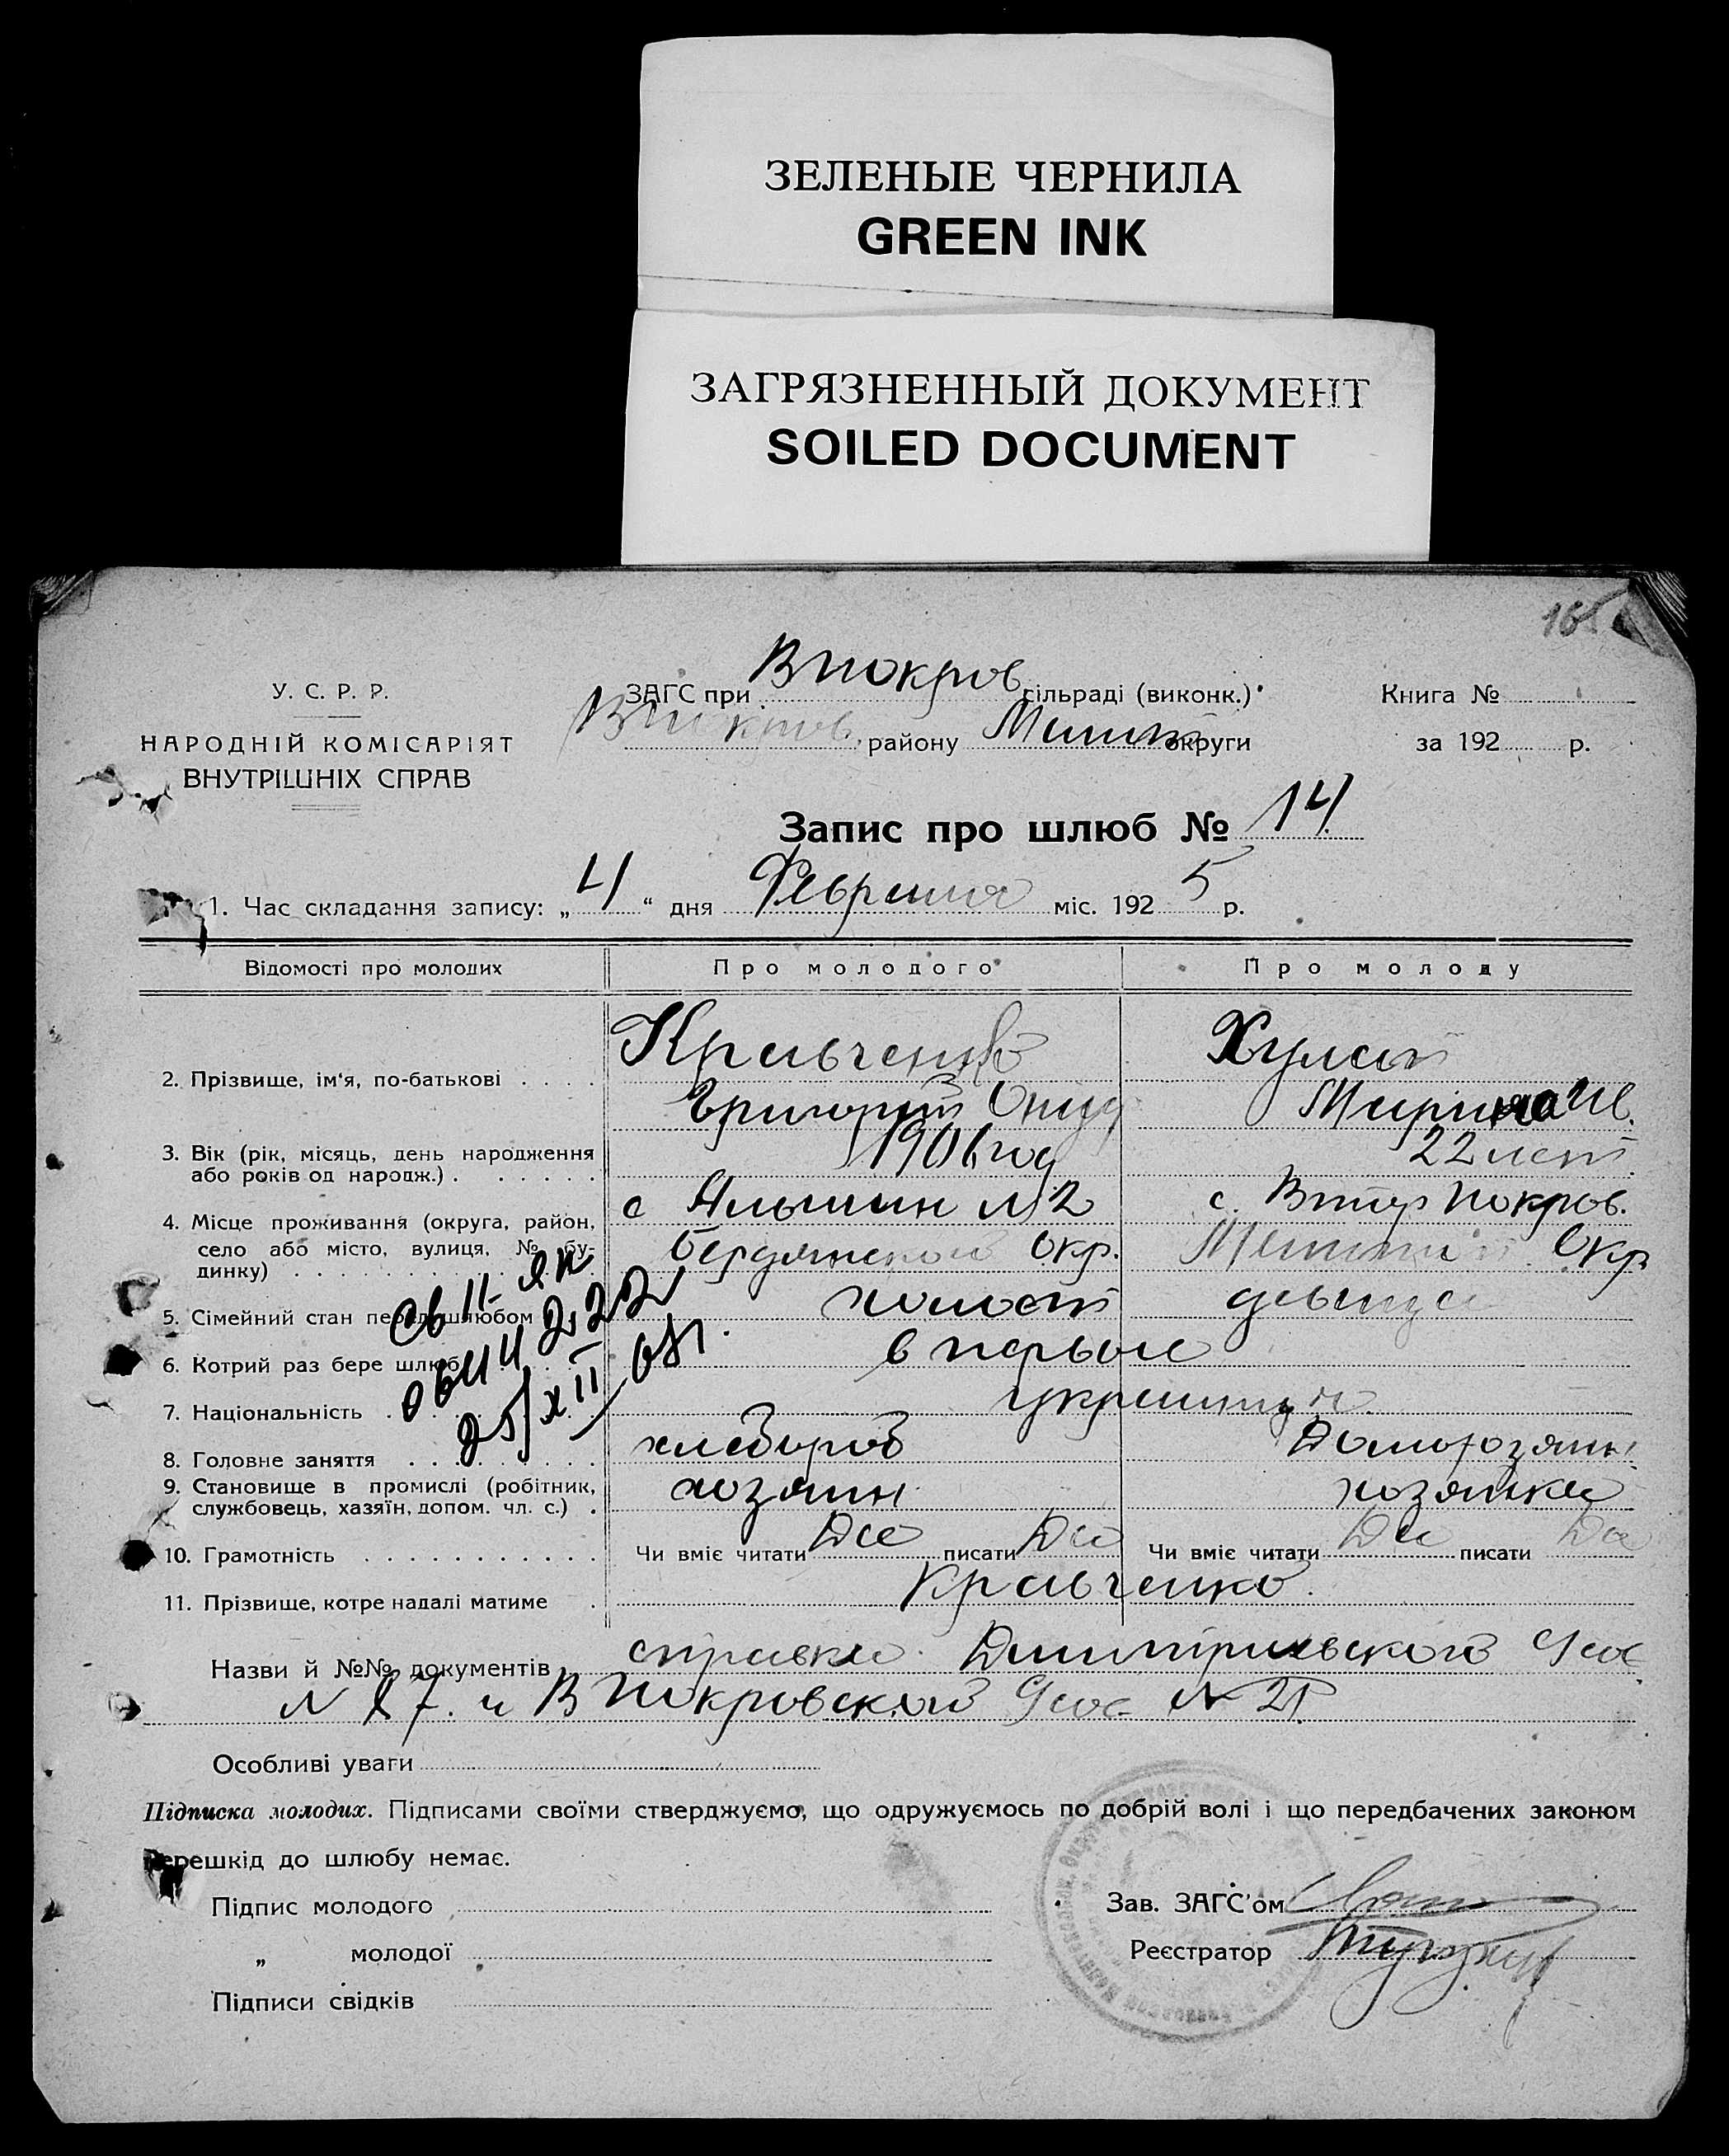 ЗЕЛЕНЫЕ ЧЕРНИЛА
GREEN INK
ЗАГРЯЗНЕННЫЙ ДОКУМЕНТ
SOILED DOCUMENT
У. С. Р. Р.
НАРОДНІЙ КОМІСАРІЯТ
ВНУТРІШНІХ СПРАВ
ЗАГС при В Покров сільраді (виконк.)
В Покров. району округи
Книга №
за 192 р.
Запис про шлюб № 14
1. Час складання запису: „ 4 “ дня Февраля міс. 192 5 р.
Відомості про молодих Про молодого Про молоду
2. Прізвище, ім'я, по-батькові . . . . Кравченко
Григорий
3. Вік (рік, місяць, день народження 1906 год 22 лет
або років од народж.) . . . . . .
4. Місце проживання (округа, район, с № 2 с. Втор Покров.
село або місто, вулиця, № бу- Бердянской Окр. Окр
динку) . . .
5. Сімейний стан перед шлюбом холост девица
6. Котрий раз бере шлюб в первые
7. Національність
8. Головне заняття хлебороб
9. Становище в промислі (робітник, хозяин хозяйка
службовець, хазяїн, допом. чл. с.) .
10. Грамотність Чи вміє читати Да писати Да Чи вміє читати Да писати Да
11. Прізвище, котре надалі матиме . Кравченко.
Назви й №№ документів справка
и В Покровского
Особливі уваги
Підписка молодих. Підписами своїми стверджуємо, що одружуємось по добрій волі і що передбачених законом
перешкід до шлюбу немає.
Підпис молодого Зав. ЗАГС'ом
„ молодої Реєстратор
Підписи свідків